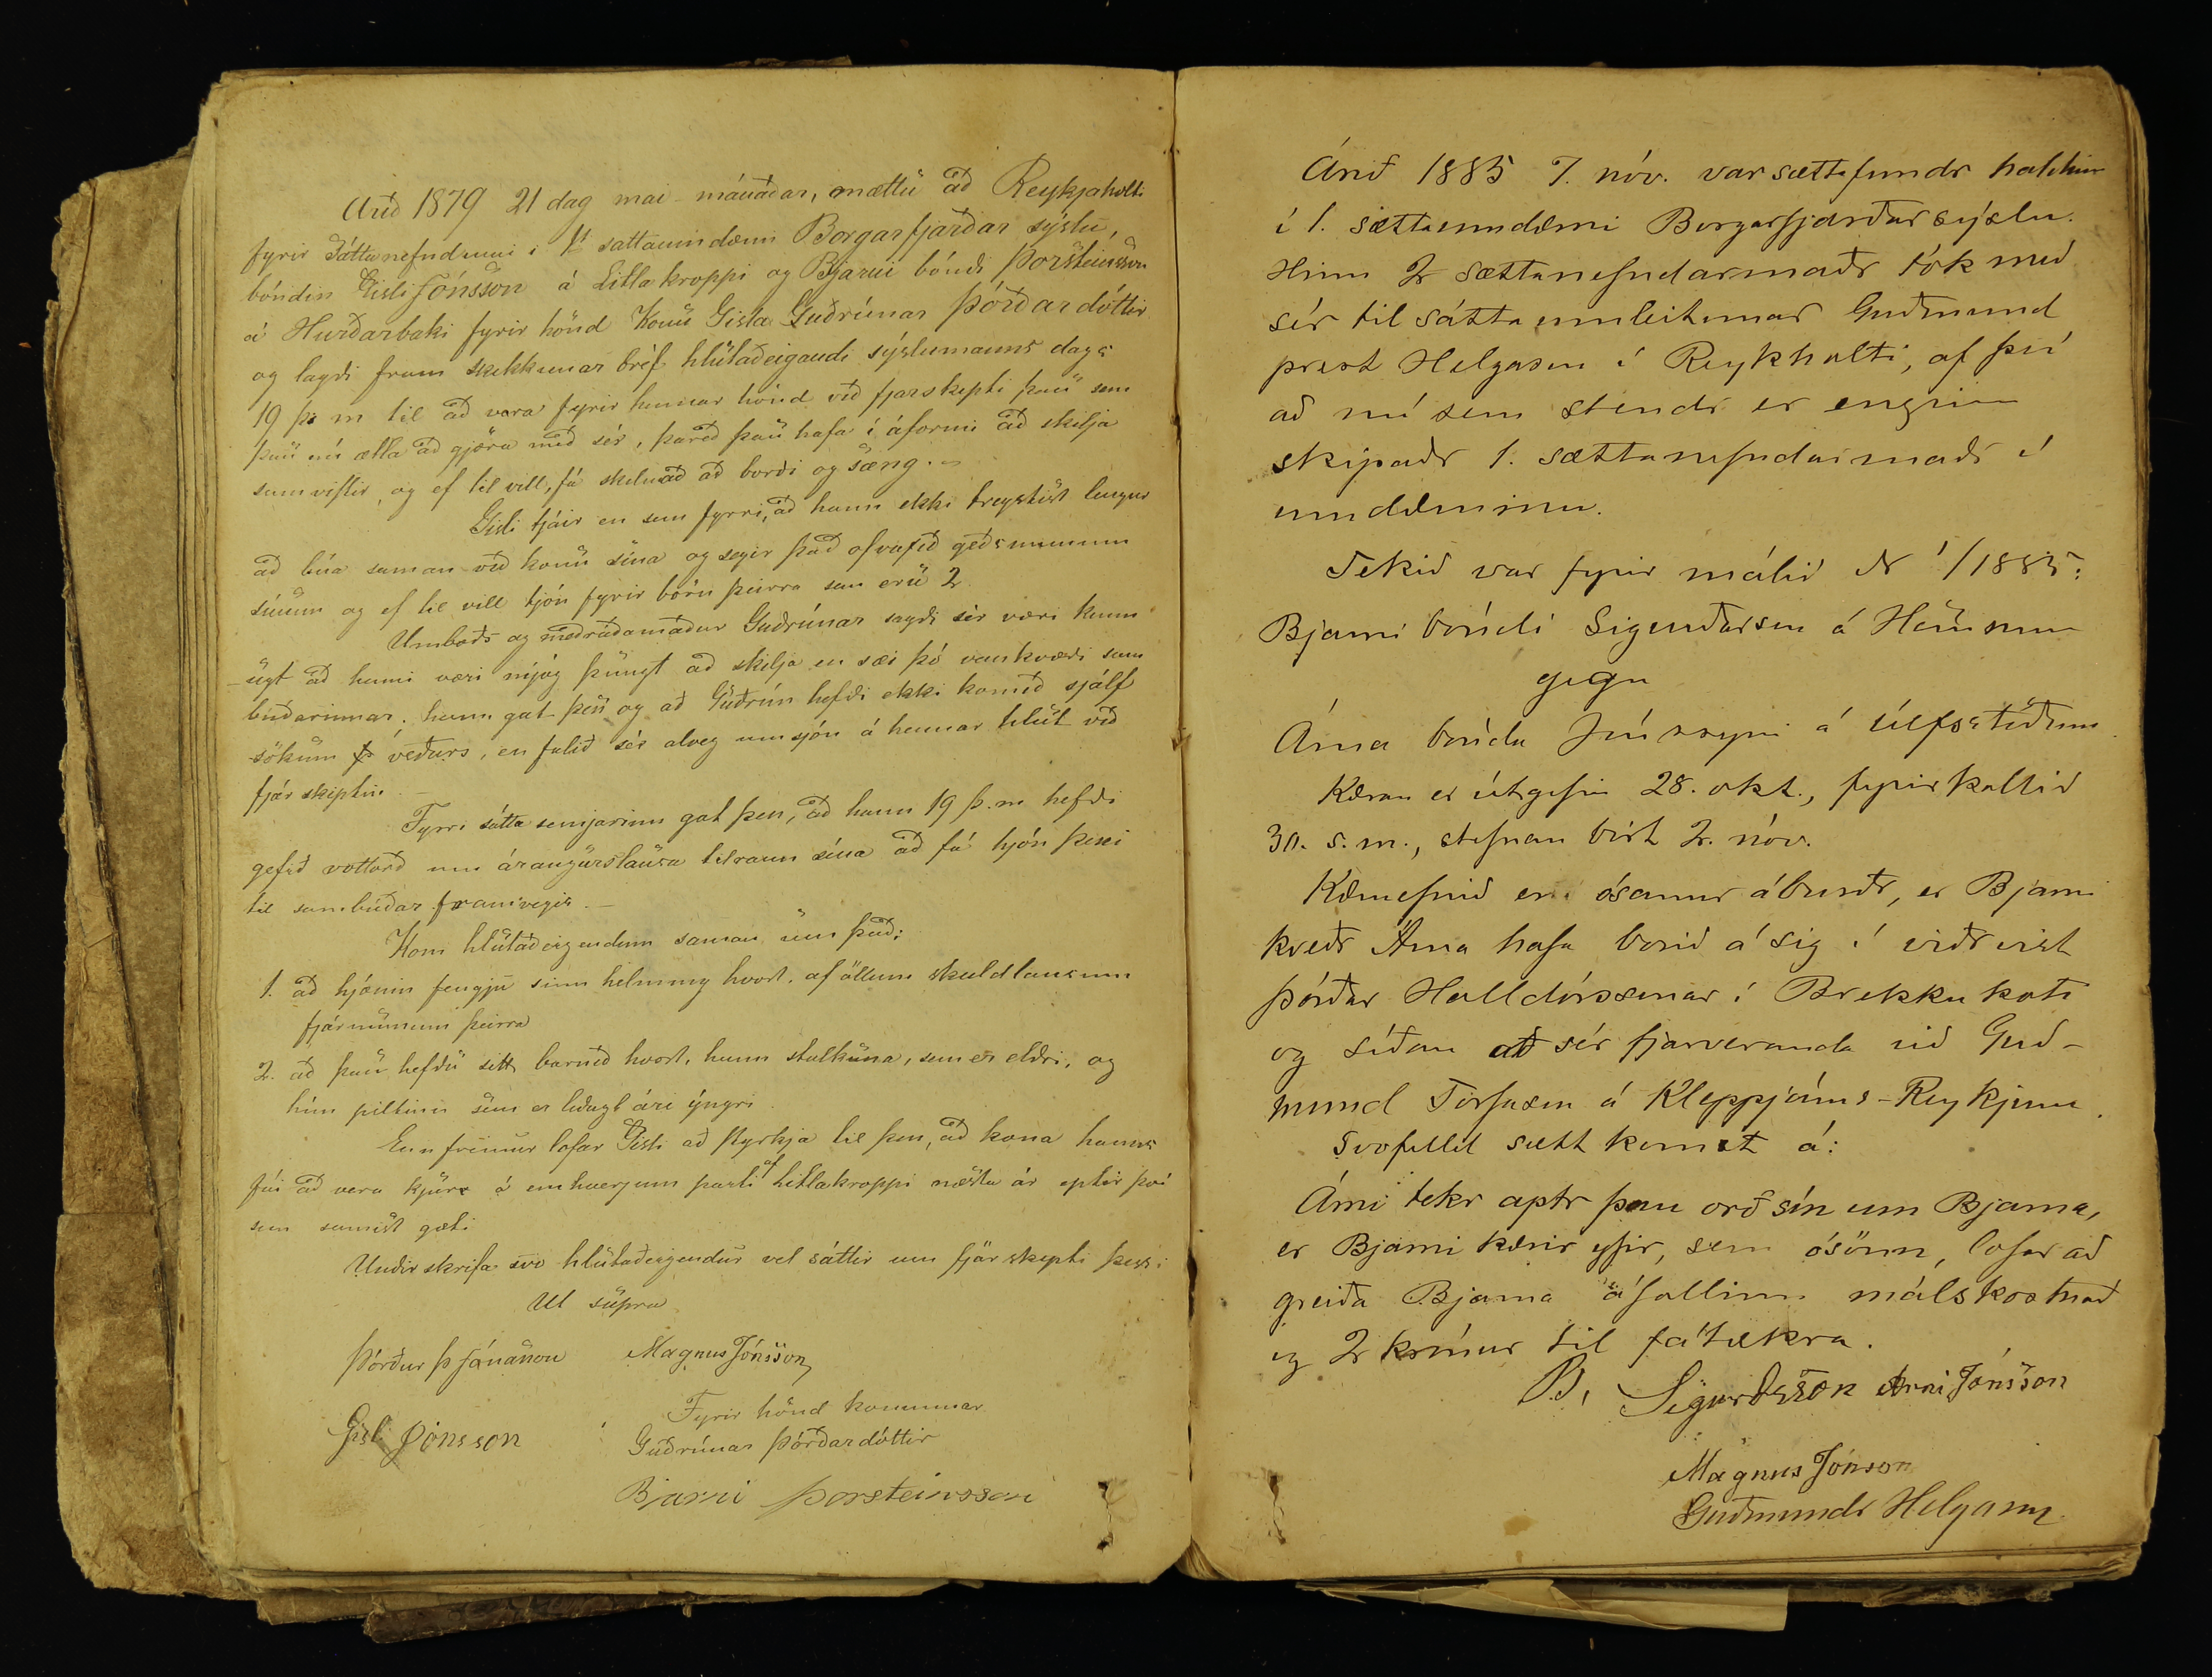 Arið 1879 21 dag mai-mánaðar, mættu að Reykjaholti
fyrir Sáttanefndinni i 1ta sattaumdæmi Borgarfjarðar sýslu,
bóndin Gisli Jónsson á Litlakroppi og Bjarni bóndi Þorsteinsson
á Hurðarbaki fyrir hönd Konu Gisla Guðrúnar Þórðardóttir
og lagði fram skikkunar bréf hlutaðeigandi sýslumanns dags
19 þ m til að vera fyrir hennar hönd við fjarskipti þau sem
þau nú ætla að gjöra með sér, þareð þau hafa i áformi að skilja
samvistir, og ef til vill, fá skilnað að borði og sæng. –
Gisli tjáir en sem fyrri, að hann ekki treystist lengur
að búa saman við konu sina og segir það ofvafið geðsmunum
sinum og ef til vill tjón fyrir börn þeirra sem eru 2.
Umboðs og meðráðamaður Guðrúnar sagði sér væri kunn
ugt að henni væri mjög þungt að skilja en sæi þó vankvæði sam
búðarinnar. hann gat þess og að Guðrún hefði ekki komið sjálf
sökum veðurs, en falið sér alveg umsjón á hennar hlut við
fjárskiptin. –
Fyrri sáttasemjarinn gat þess, að hann 19 þ.m hefði
gefið vottorð um árangurslausa tilraun sina að fá hjón þessi
til sambúðar framvegis. –
Kom hlutaðeigendum saman um það:
1. að hjónin fengju sinn helming hvort. af öllum skuldlausum
fjármunum þeirra
2. að þau hefðu sitt barnið hvort, hann stulkuna, sem er eldri, og
hún piltinn sem er liðugt ári yngri.
Enn fremur lofar Gisli að styrkja til þess, að kona hanns
fái að vera kjur á einhverjum parti af Litlakroppi næsta ár eptir því
sem samist gæti
Undirskrifa svo hlutaðeigendur vel sáttir um fjárskipti þessi
Ut supra
Þórður Þ Jónasson Magnus Jónsson
Fyrir hönd konunnar
Gisli Jónsson Guðrúnar Þórðardóttir
Bjarni Þorsteinsson
Árið 1885 7. nóv. var sættafundr haldinn
í 1. sættaumdæmi Borgarfjarðarsýslu.
Hinn 2. sættanefndarmaðr tók með
sér til sáttaumleitunar Guðmund
prest Helgason í Reykholti, af því
að nú sem stendr er enginn
skipaðr 1. sættanefndarmaðr í
umdæminu.
Tekið var fyrir málið № 1/1885:
Bjarni bóndi Sigurðsson á Hömrum
gegn
Árna bónda Jónssyni á Úlfsstöðum.
Kæran er útgefin 28. okt., fyrirkallið
30. s.m., stefnan birt 2. nóv.
Kæruefnið er ósannur áburðr, er Bjarni
kveðr Árna hafa borið á sig í viðrvist
Þórðar Halldórssonar í Brekkukoti
og síðan að sér fjarveranda við Guð-
mund Torfason á Kleppjárns-Reykjum.
Svofelld sætt komst á:
Árni tekr aptr þau orð sín um Bjarna,
er Bjarni kærir yfir, sem ósönn, lofar að
greiða Bjarna áfallinn málskostnað
og 2 krónur til fátækra.
B. Sigurðsson Arni Jónsson
Magnus Jónson
Guðmundr Helgason